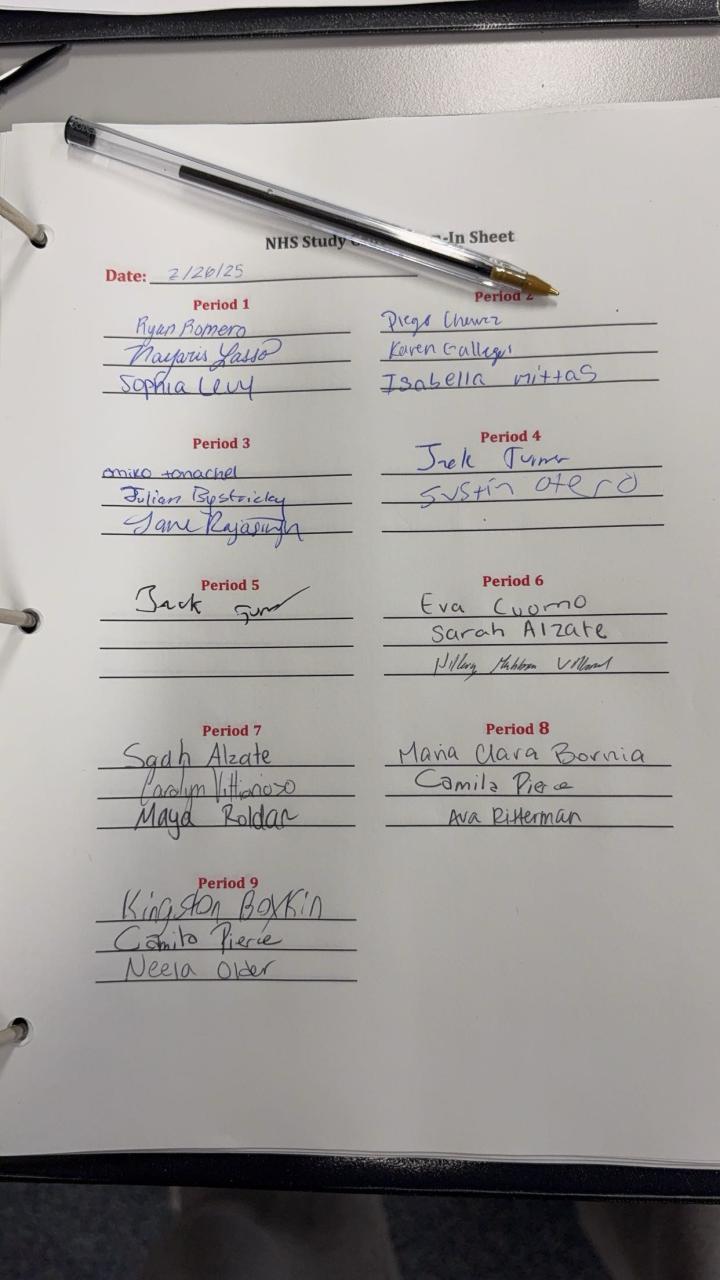 NHS Study -In Sheet
Date: 2/26/25
Period 1
Ryan Romero
Nayaris Lasso
Sophia Levy
Period 2
Diego Chavez
Karen Gallegos
Isabella Mittas
Period 3
omiko tonachel
Julian Bystricky
Rajasingh
Period 4
Jack Turner
Justin Otero
Period 5
Jack
Period 6
Eva Cuomo
Sarah Alzate
Hillary
Period 7
Alzate
Carolyn Vittorioso
Maya Roldan
Period 8
Maria Clara Bornia
Camila Pierce
Ava Ritterman
Period 9
Kingston Boykin
Camila Pierce
Neela Older